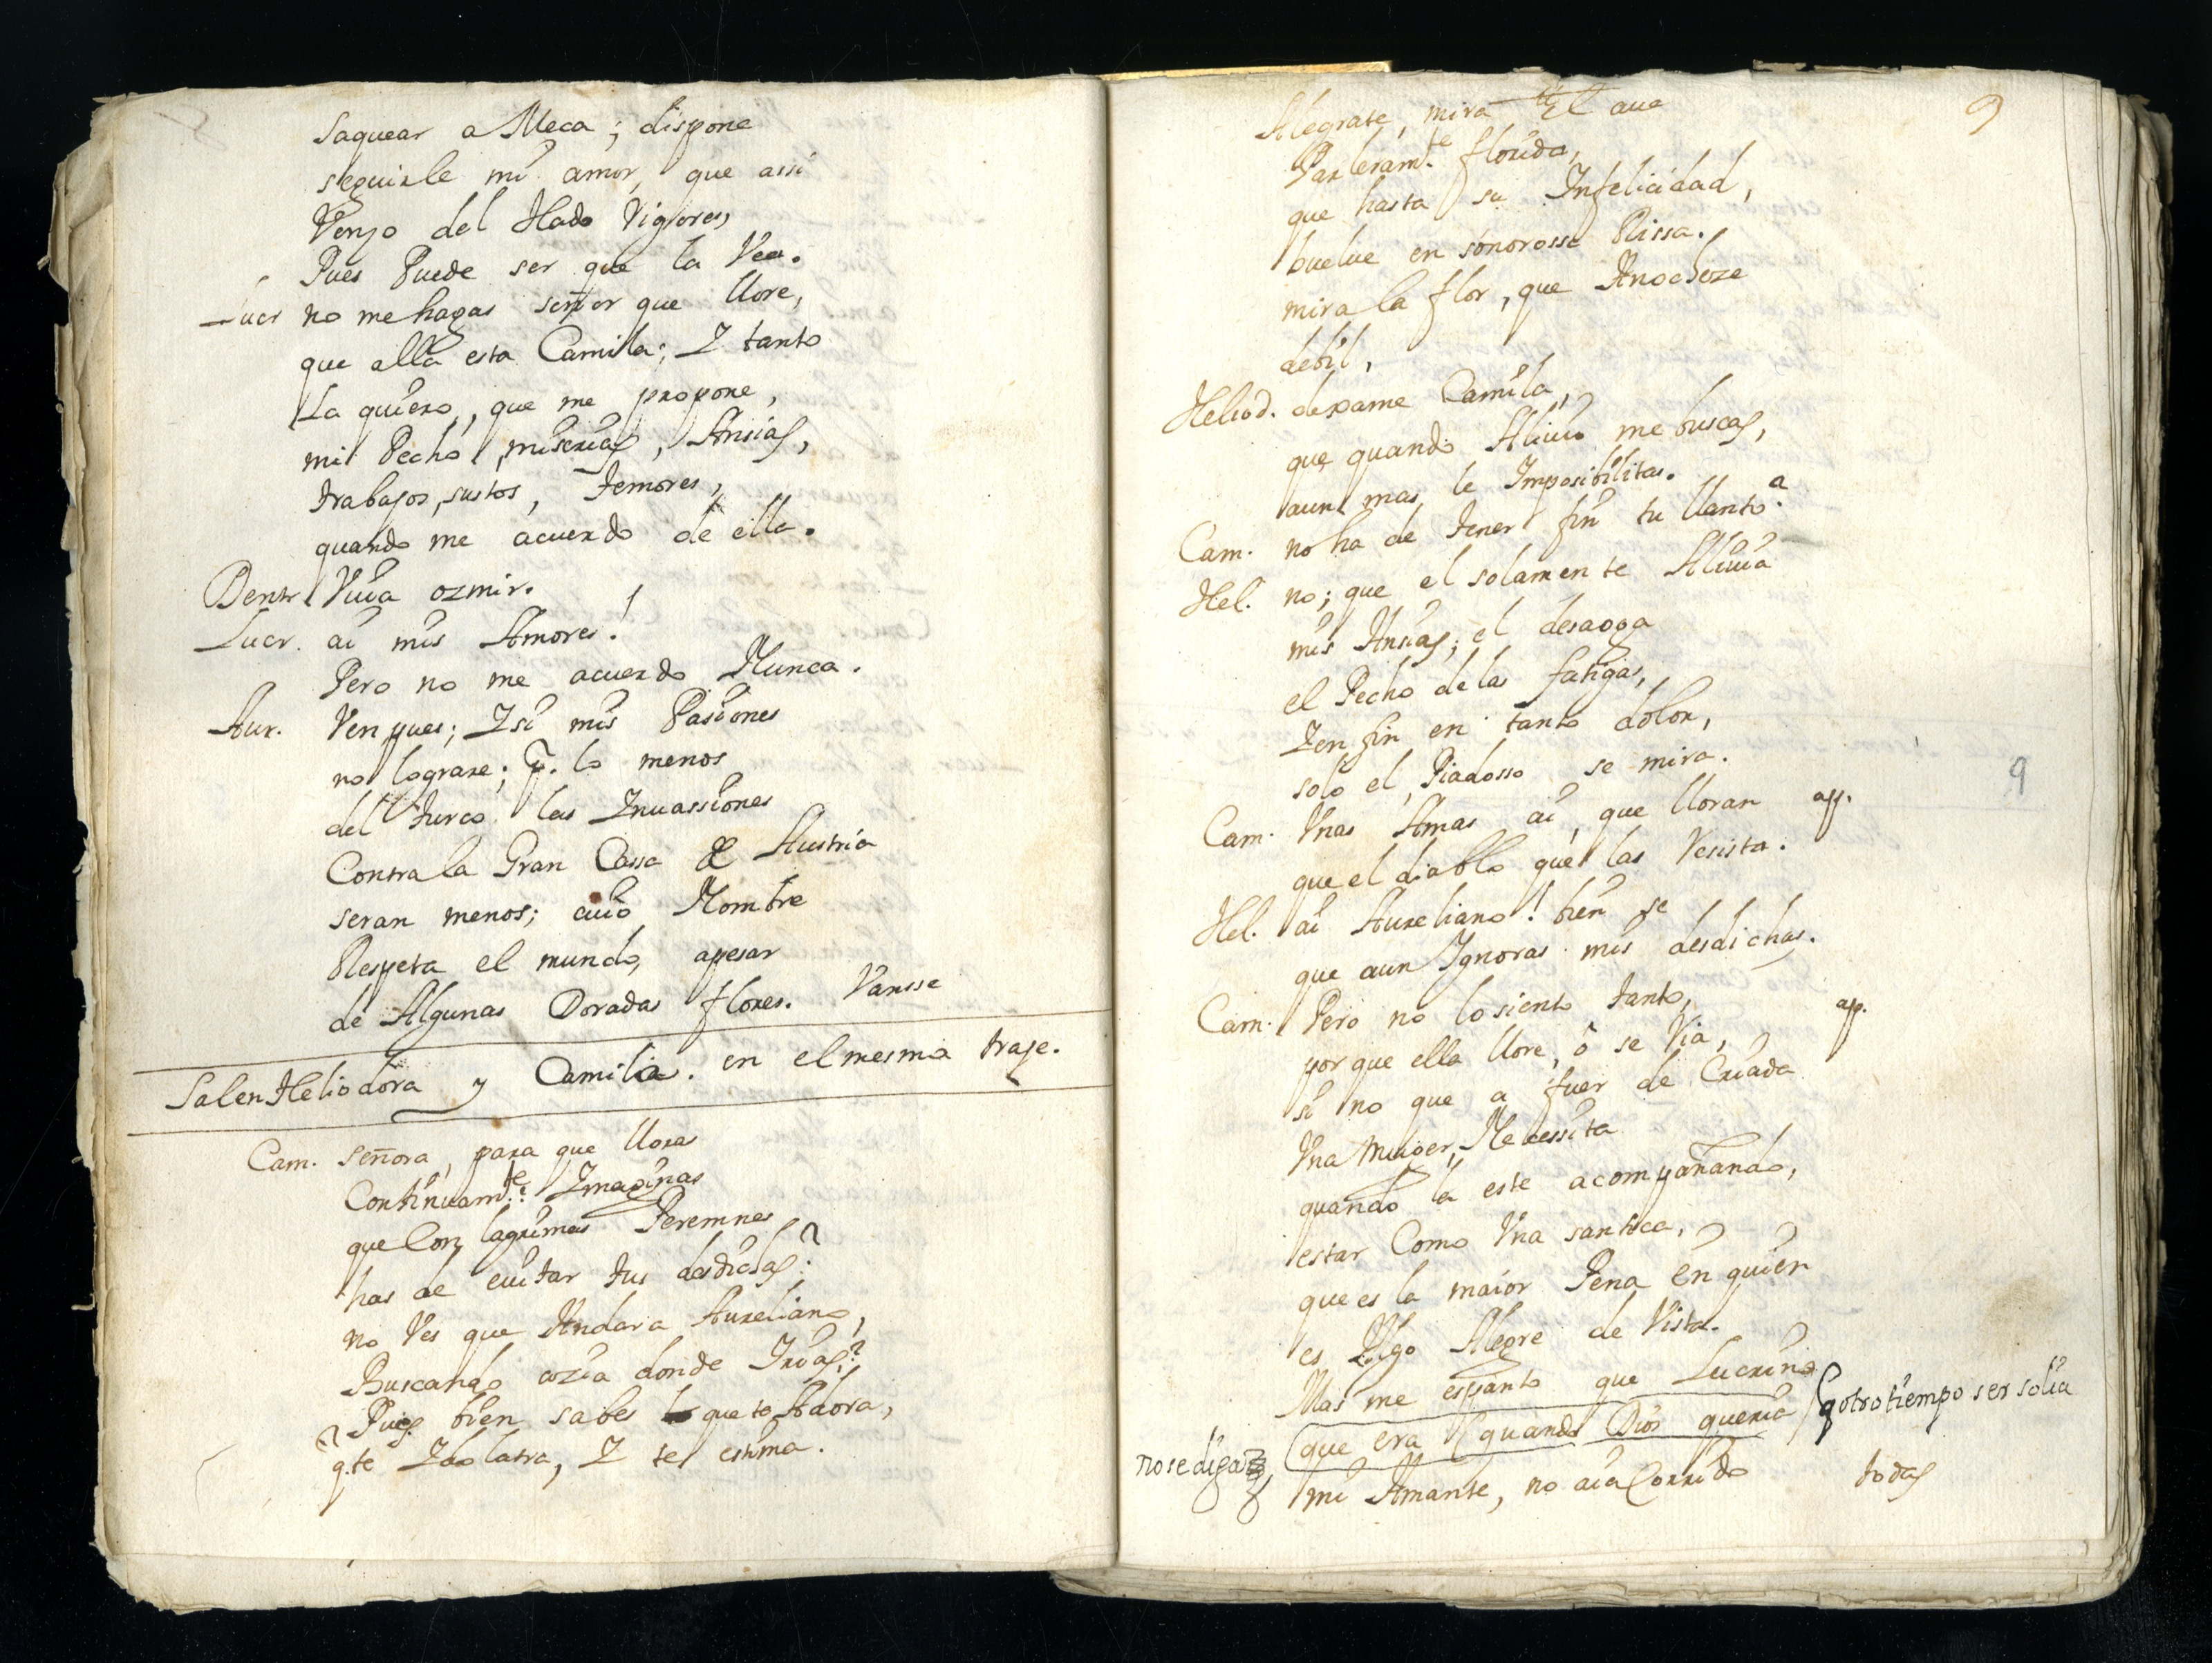 saquear a Meca; dispone
seguirle mi amor, que assi
Venzo del Hado Vigores,
Pues Puede ser que la Vea.
Lucr no me hagas señor que llore,
que alla esta Camila; Y tanto
La quiero, que me propone,
mi Pecho, miserias, Ansias,
trabajos, sustos, temores,
quando me acuerdo de ella.
Dentr Viua ozmir.
Lucr. ai mis Amores!
Pero no me acuerdo Nunca.
Aur. Ven pues; Y si mis Pasiones
no lograre; p. lo menos
del turco las Inuassiones
Contra la Gran Cassa de Austria
seran menos; cuio Nombre
Respeta el mundo, apesar
de Algunas Doradas flores. Vansse
Salen Heliodora y Camila. en el mesmo traje.
Cam. señora, para que lloras
Continuam.te? Imaginas
que Con lagrimas Peremnes
has de euitar tus desdichas?
no Ves que Andara Aureliano,
Buscando azia donde Irias?
Pues bien sabes que te Adora,
q. te Idolatra, Y te estima.
9
Alegrate, mira El aue
Parleram.te florida,
que hasta su Infelicidad,
buelue en sonorossa Rissa.
mira la flor, que Anocheze
debil,
Heliod. dexame Camila,
que quando Aliuio me buscas,
aun mas le Imposibilitas.
Cam. no ha de tener fin tu llanto?
Hel. no; que el solamente Aliuia
mis Ansias; el desaoga
el Pecho de las fatigas,
Y en fin en tanto dolor,
solo el, Piadosso se mira.
9
Cam. Vnas Amas ai, que lloran ap.
que el diablo que las Resista.
Hel. ai Aureliano! bien se
que aun Ignoras mis desdichas.
Cam. Pero no lo siento tanto, ap.
por que ella llore, ò se Ria,
si no que a fuer de Criada
Vna Muger, Necessita
quando la este acompañando,
estar Como Vna santica,
que es la maior Pena en quien
es Algo Alegre de Vista.
Mas me espanto que Lucrino
que era quando Dios queria q otro tiempo ser solia
no se diga
mi Amante, no aia Corrido todas